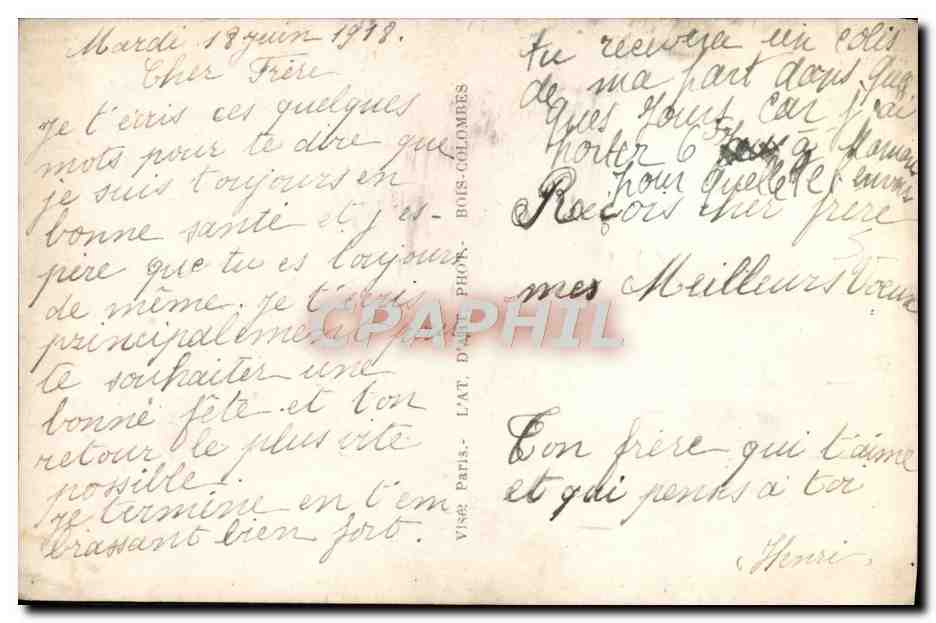 Mardi 18 juin 1918.
Cher Frère
Je t'écris ces quelques
mots pour te dire que
je suis toujours en
bonne santé et j'es-
père que tu es toujours
de même. Je t'écris
principalement pour
te souhaiter une
bonne fête et ton
retour le plus vite
possible.
je termine en t'em
brassant bien fort.
Visé: Paris.- L'AT. D'ART PHOT.- BOIS-COLOMBES
tu recevera un colis
de ma part dans quel
ques jours car j'ai
porter 6 à Maman
pour quelle te l'envois
Reçois cher frère
mes Meilleurs Voeux
Ton frère qui t'aime
et qui penses a toi
Henri
CPAPHIL